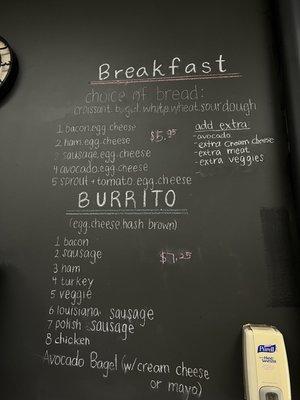 Breakfast
choice of bread:
croissant. bagel. white. wheat. sourdough
1 bacon.egg.cheese
2 ham.egg.cheese
3 sausage.egg.cheese
4 avocado.egg.cheese
5 sprout + tomato.egg.cheese
$5.95
add extra:
-avocado
-extra cream cheese
-extra meat
-extra veggies
BURRITO
(egg.cheese.hash brown)
1 bacon
2 sausage
3 ham
4 turkey
5 veggie
6 louisiana sausage
7 polish sausage
8 chicken
$7.25
Avocado Bagel (w/cream cheese
or mayo)
Purell